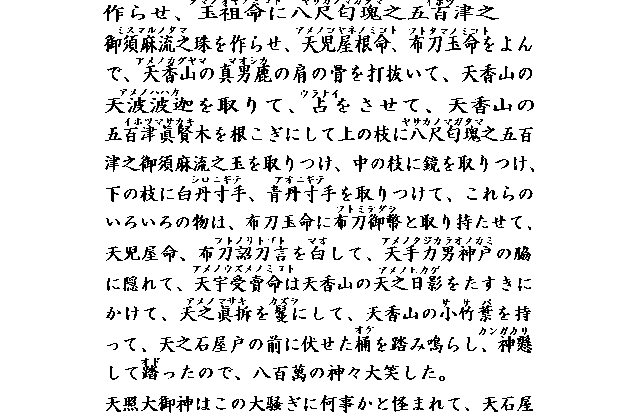 作らせ、玉祖命に八尺勾瓊之五百津之
御須麻流之珠を作らせ、天児屋根命、布刀玉命をよん
で、天香山の真男鹿の肩の骨を打抜いて、天香山の
天波波迦を取りて、占をさせて、天香山の
五百津眞賢木を根こぎにして上の枝に八尺勾瓊之五百
津之御須麻流之玉を取りつけ、中の枝に鏡を取りつけ、
下の枝に白丹寸手、青丹寸手を取りつけて、これらの
いろいろの物は、布刀玉命に布刀御幣と取り持たせて、
天児屋命、布刀詔刀言を白して、天手力男神戸の脇
に隠れて、天宇受賣命は天香山の天之日影をたすきに
かけて、天之眞拆を鬘にして、天香山の小竹葉を持
って、天之石屋戸の前に伏せた桶を踏み鳴らし、神懸
して踏ったので、八百萬の神々大笑した。
天照大御神はこの大騒ぎに何事かと怪まれて、天石屋